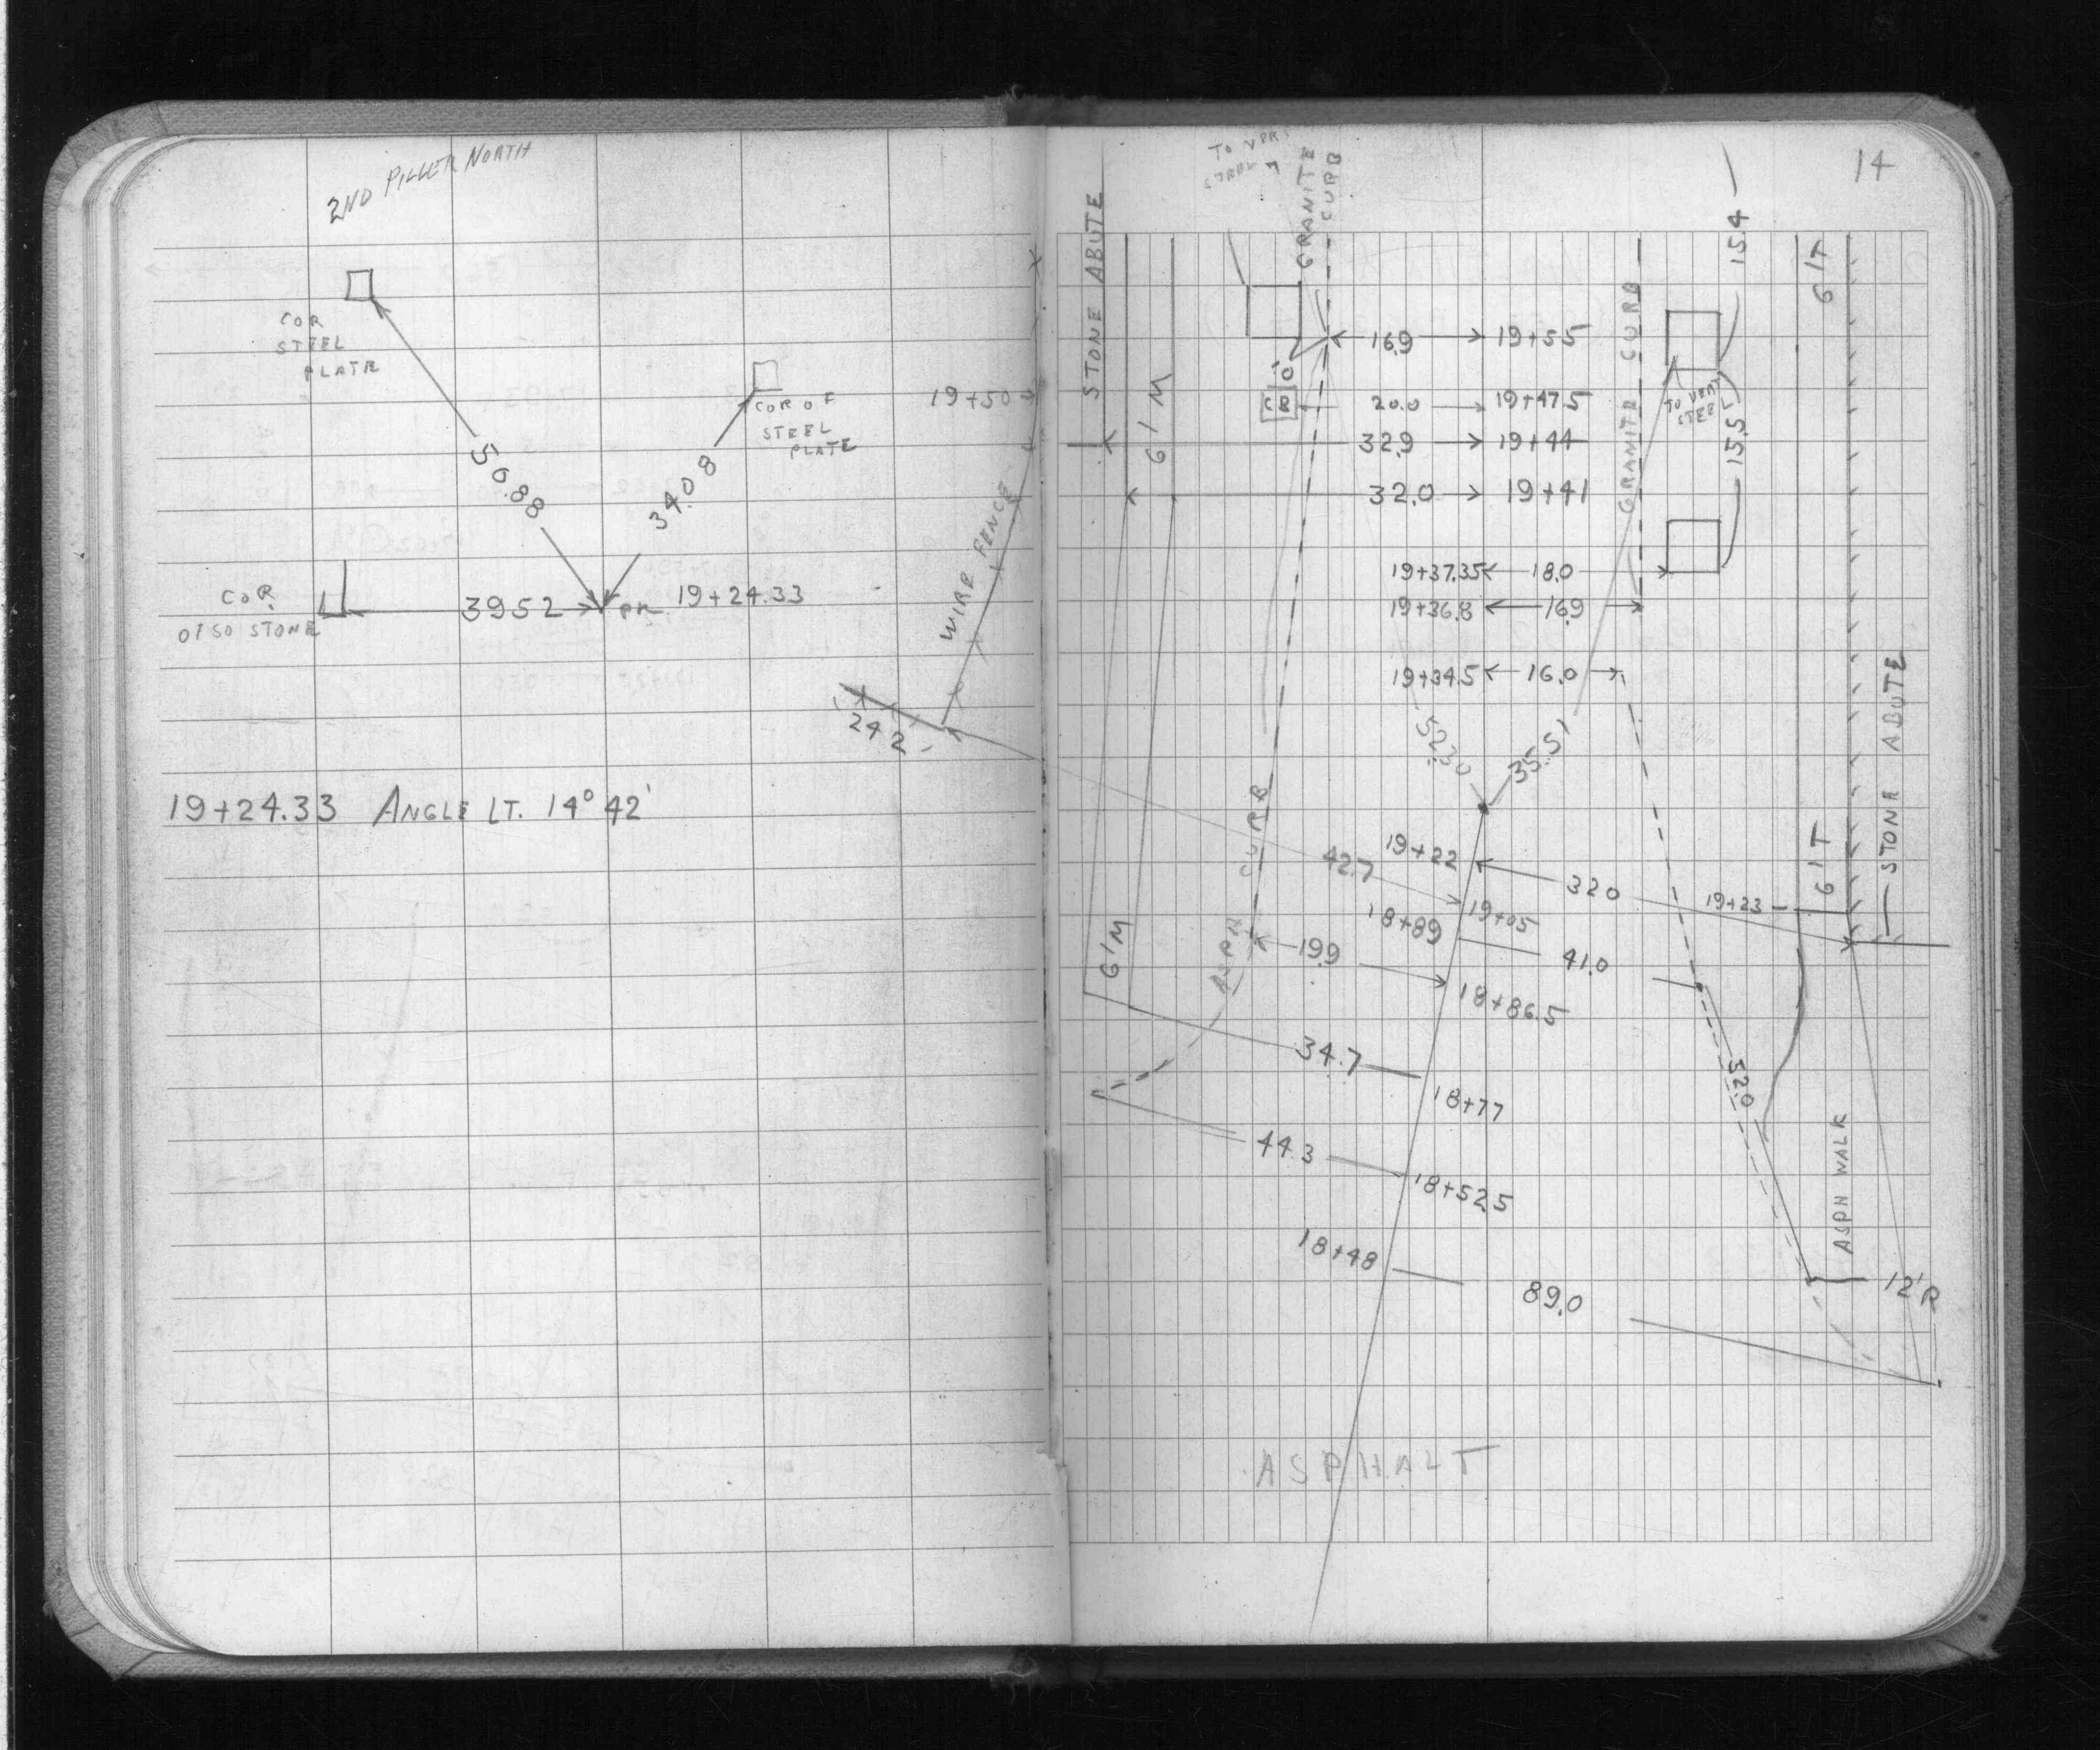 2ND PILLER NORTH
COR
STEEL
PLATE
COR OF
STEEL
PLATE
50.88
34.08
COR.
OF SO STONE
39.52
PK
19+24.33
WIRE FENCE
19+50
24.2
19+24.33 ANGLE LT. 14° 42'
14
STONE ABUTE
GRANITE
CURB
15.4
16.9
19+55
GRANITE CURB
CB
20.0
19+47.5
TO VERT
STEEL
15.5
32.9
19+44
32.0
19+41
19+37.35
18.0
19+36.8
16.9
19+34.5
16.0
52.30
35.51
STONE ABUTE
ASPH CURB
19+22
32.0
19+23
42.7
19+05
18+89
41.0
19.9
18+86.5
34.7
18+77
52.0
44.3
18+52.5
ASPH WALK
18+48
89.0
12'R
ASPHALT